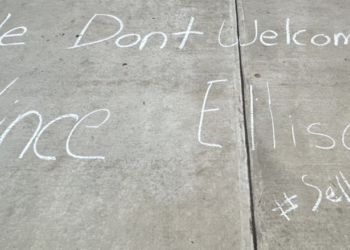 e Dont Welcom
ince Elliso
#Sell